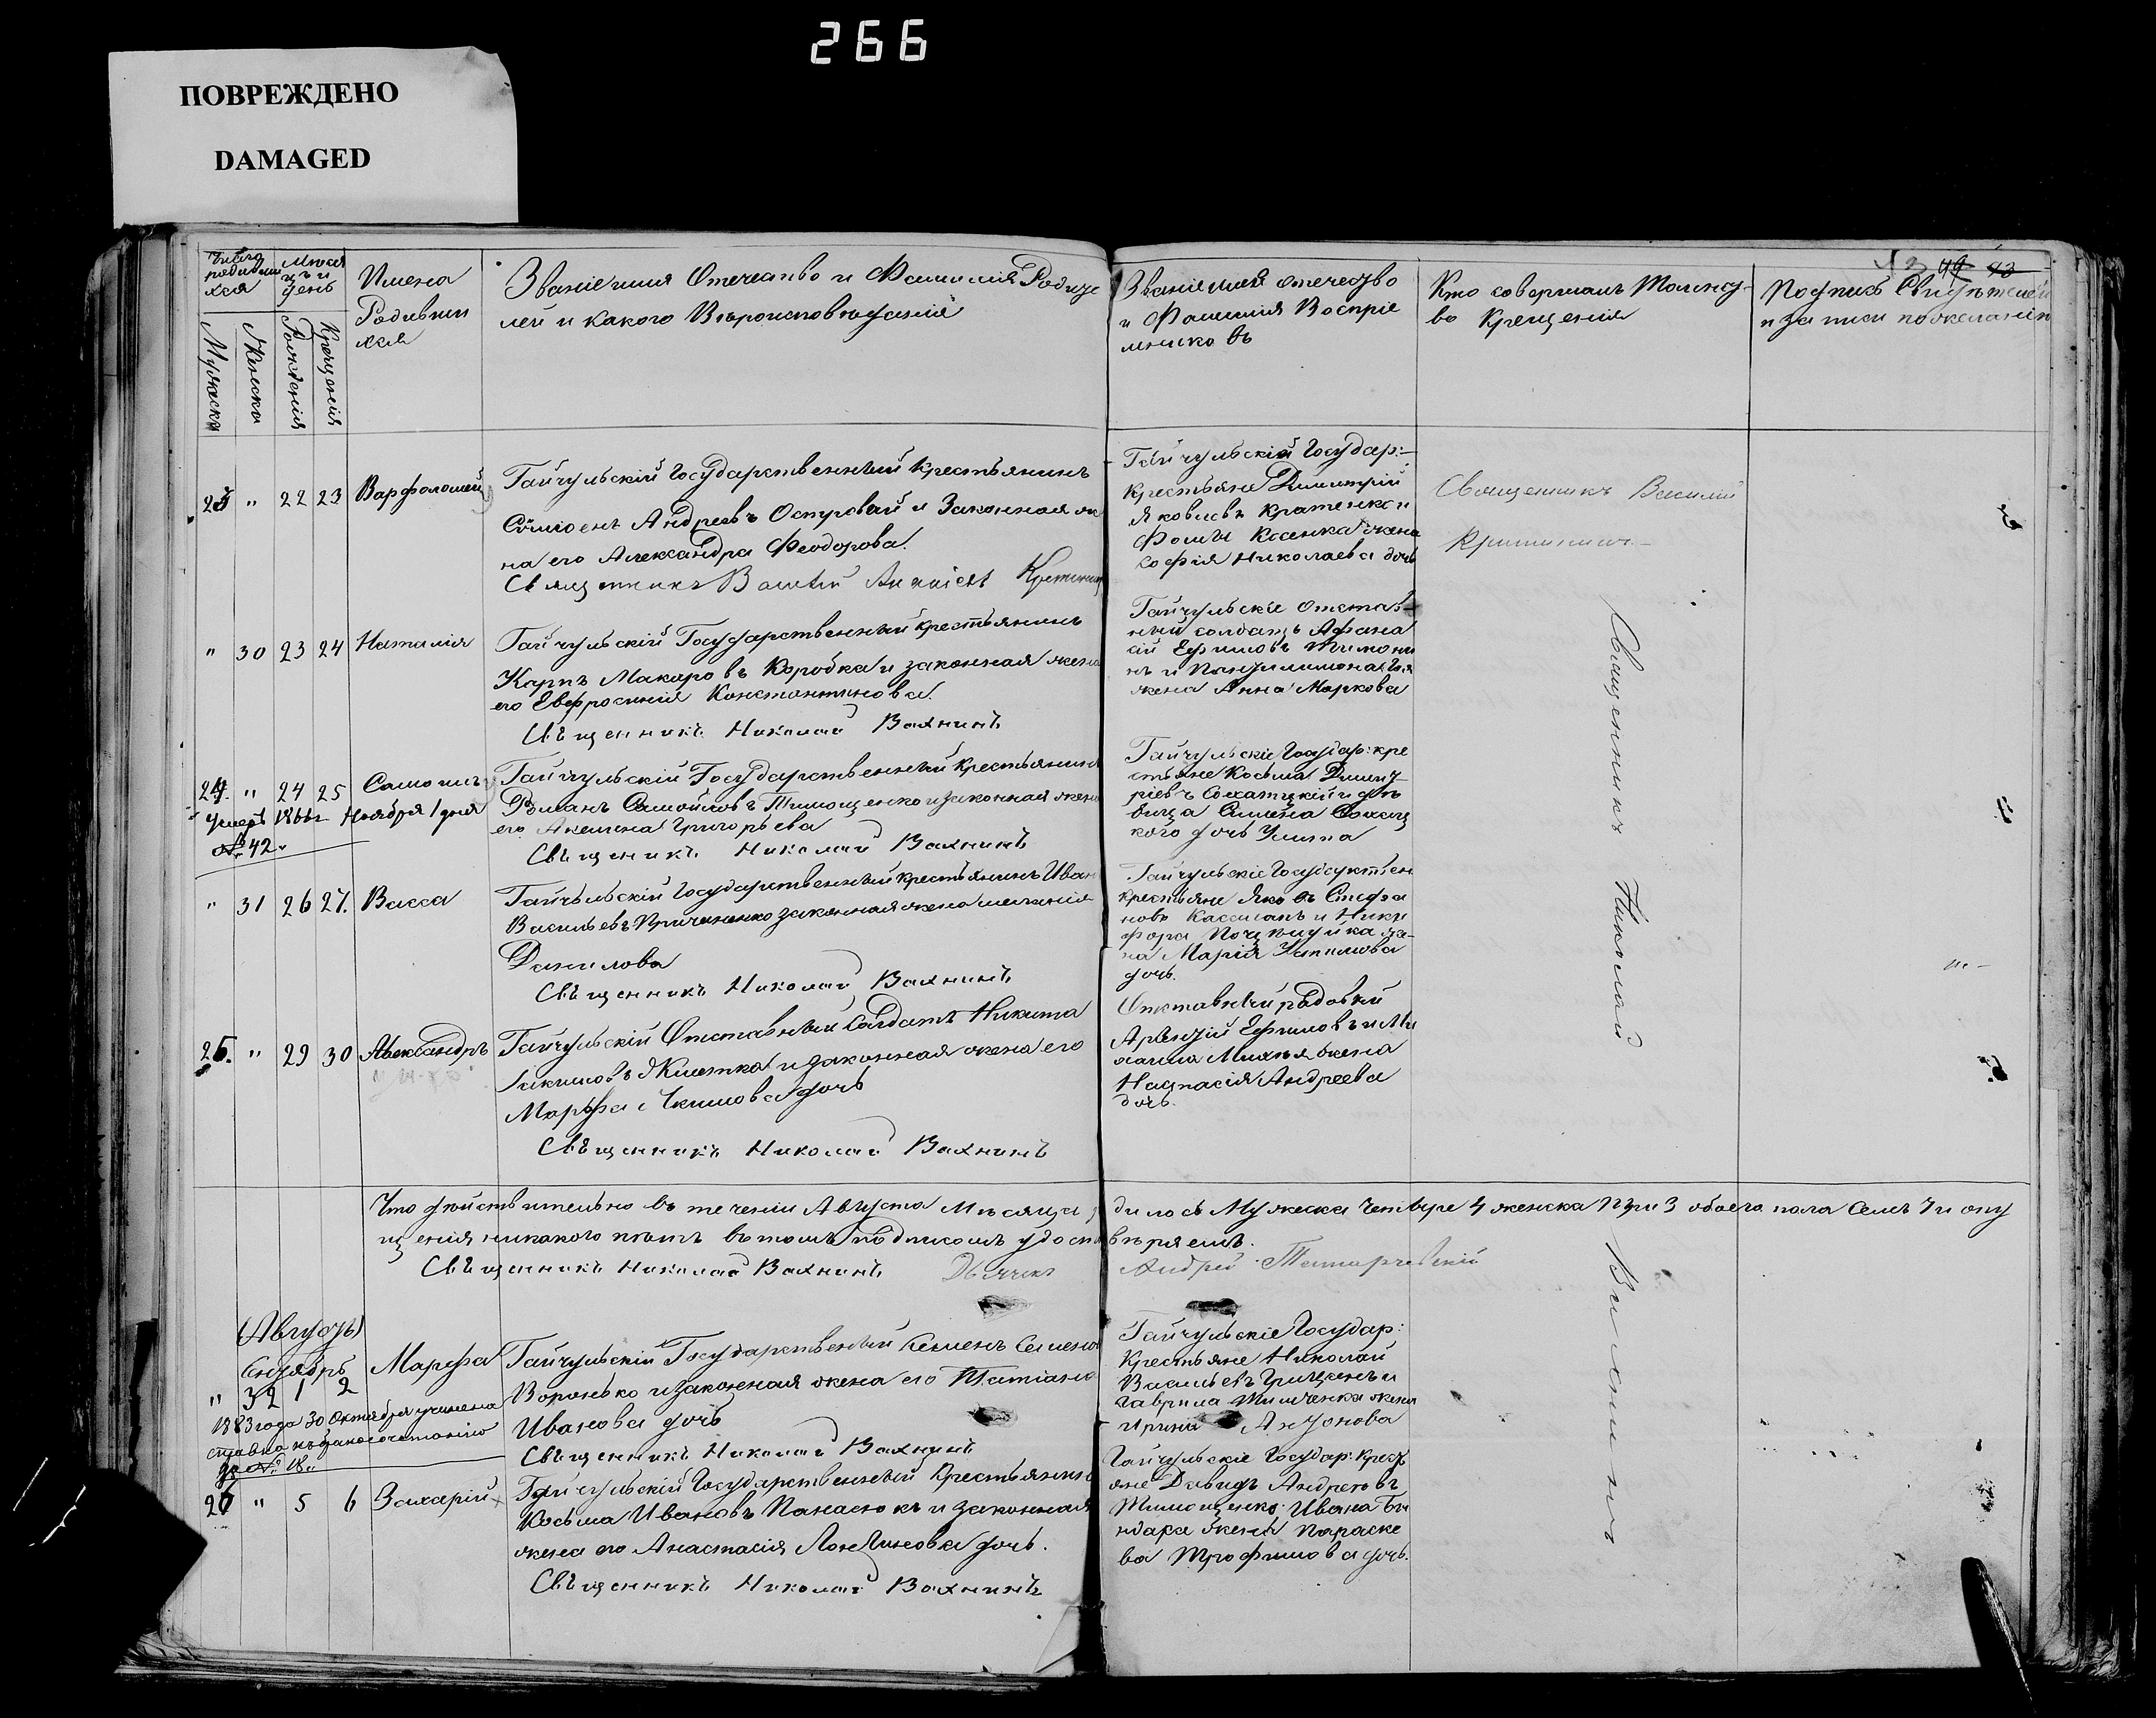 266
ПОВРЕЖДЕНО
DAMAGED
Число родивши хся
Мужеска
Женска
Месяцъ и день
Рожденія
Крещенія
Имена
Родивши
хся
Званіе имя Отечество и Фамилія Родите
лей и какого Вѣроисповѣданія
Званіе имя отечество
и Фамилія Воспріе
мников ъ
Кто совершалъ Таинст-
во Крещенія
Подпись Свидѣтелей
и записи по желанію
" 22 23 Варфоломей
Гайчульскій Государственный крестьянинъ
Сѵмеонъ Андреевъ Островый и Законная же
на его Александра Феодорова.
Священникъ
Гайчульскій Государ:-
крестьяне Димитрій
Яковлевъ Кратенко и
Фомы Косенка жена
Софія Николаева дочь
Священникъ Василій
" 30 23 24 Наталія
Гайчульскій Государственный крестьянинъ
Карпъ Макаровъ Коробка и законная жена
его Евфросинія Константинова.
Свѣщенникъ Николай Вахнинъ
Гайчульскіе отстав-
ный солдатъ Афана
сій Ефимовъ Тимони
жена Анна Маркова
24. " 24 25 Самоилъ
умеръ 1866 г Ноября 1 дня
№ 42.
Гайчульскій Государственный Крестьянинъ
Романъ Самойловъ Тимощенко и законная жена
его Акелина Григорьева
Свѣщеникъ Николай Вахнинъ
Гайчульскіе Государ: кре
стьяне Косьма Димит
ріевъ Сохатскій и дѣ
вица Симеона Сохац
кого дочь Улита
" 31 26 27. Васса
Гайчульскій Государственный Крестьянинъ Иван
Васильевъ законная жена
Данилова
Свѣщенникъ Николай Вахнинъ
Гайчульскіе Государствен
крестьяне Яковъ Стефа
новъ Кассианъ и Ники
фора же-
на Марія
дочь.
" 29 30 Александръ
Гайчульскій Отставный Салдатъ Никита
и законная жена его
Марфа Екимова дочь
Свѣщенникъ Николай Вахнинъ
Отставный рядовый
Арѳентій Ефимовъ и Ми
хаила жена
Настасія Андреева
дочь.
Священникъ Николай
Что дѣйствительно въ теченіи Августа Мѣсяца ро дилось Мужеска Четыре 4 женска три 3 обоего пола Семъ 7 и опу
щенія никакого нѣтъ въ томъ подписомъ удосто вѣряемъ.
Свѣщенникъ Николай Вахнинъ Дьячекъ Андрей
(Августъ)
Сентябрь
" 32 1 2 Марфа
1883 года 30 Октября учинена
справка къ бракосочетанію
за № 18.
Гайчульскій Государственный Семенъ Семено
Воронько и законная жена его Татіана
Иванова дочь
Свѣщенникъ Николай Вахнинъ
Гайчульскіе Государ:
Крестьяне Николай
Васильевъ Грищенъ и
Гаврила Тимченка жена
Ирина Антонова
" 5 6 Захарій
Гайчульскій Государственный Крестьянинъ
Косьма Ивановъ Панасюкъ и законная
жена его Анастасія Логинова дочь.
Свѣщенникъ Николай Вахнинъ
Гайчульскіе Государ: Крест
яне Давидъ Андреевъ
Тимощенко: Ивана Бон
даря жена Параске
ва Трофимова дочь.